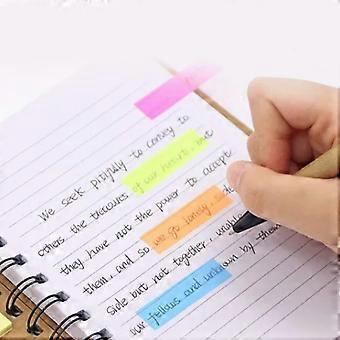 We seek pitifully to convey to
others the treasures of our hearts, but
they have not the power to accept
them, and so we go lonely, side
side but not together, unable
our fellows and unknown by them